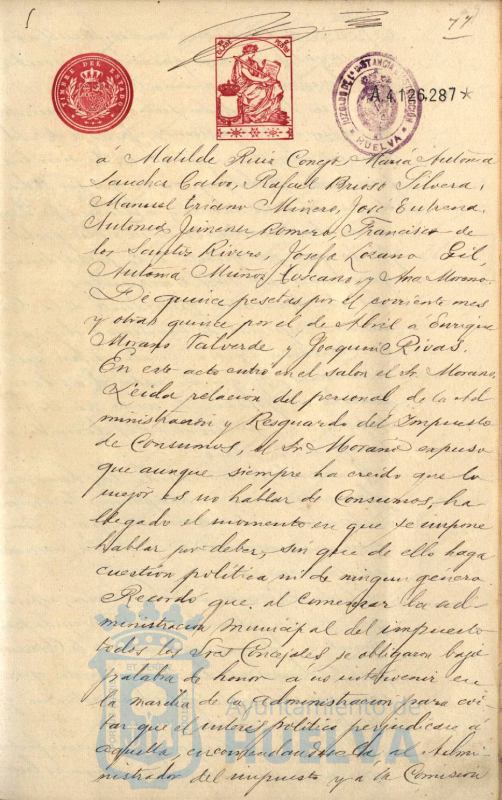 77
TIMBRE DEL ESTADO
JUZGADO DE 1ª INSTANCIA E INSTRUCCIÓN
HUELVA
A.4.126.287*
á Matilde Ruiz Conejo, María Antonia
Sanchez Calvo, Rafael Brioso Silvera,
Manuel Triano Miñero, José Eutrena,
Antonio Jimenez Romero, Francisco de
los Santos Rivero, Josefa Lozano Gil,
Antonia Muñoz Toscano, y Ana Moreno.
De quince pesetas por el corriente mes
y otras quince por el de Abril á Enrique
Morano Valverde y Joaquin Rivas.
En este acto entró en el salon el Sr. Morano.
Leida relacion del personal de la Ad-
ministración y Resguardo del Impuesto
de Consumos, el Sr Morano expuso
que aunque siempre ha creido que lo
mejor es no hablar de Consumos, ha
llegado el momento en que se impone
hablar por deber, sin que de ello haga
cuestion política ni de ningun genero
Recordó que, al comenzar la ad-
ministracion municipal del impuesto
todos los Sres Concejales se obligaron bajo
palabra de honor a no intervenir en
la marcha de la administracion para evi-
tar que el interés politico perjudicase á
aquella encomendandosela al Admi-
nistrador del impuesto y á la Comision
Ayuntamiento de
HUELVA